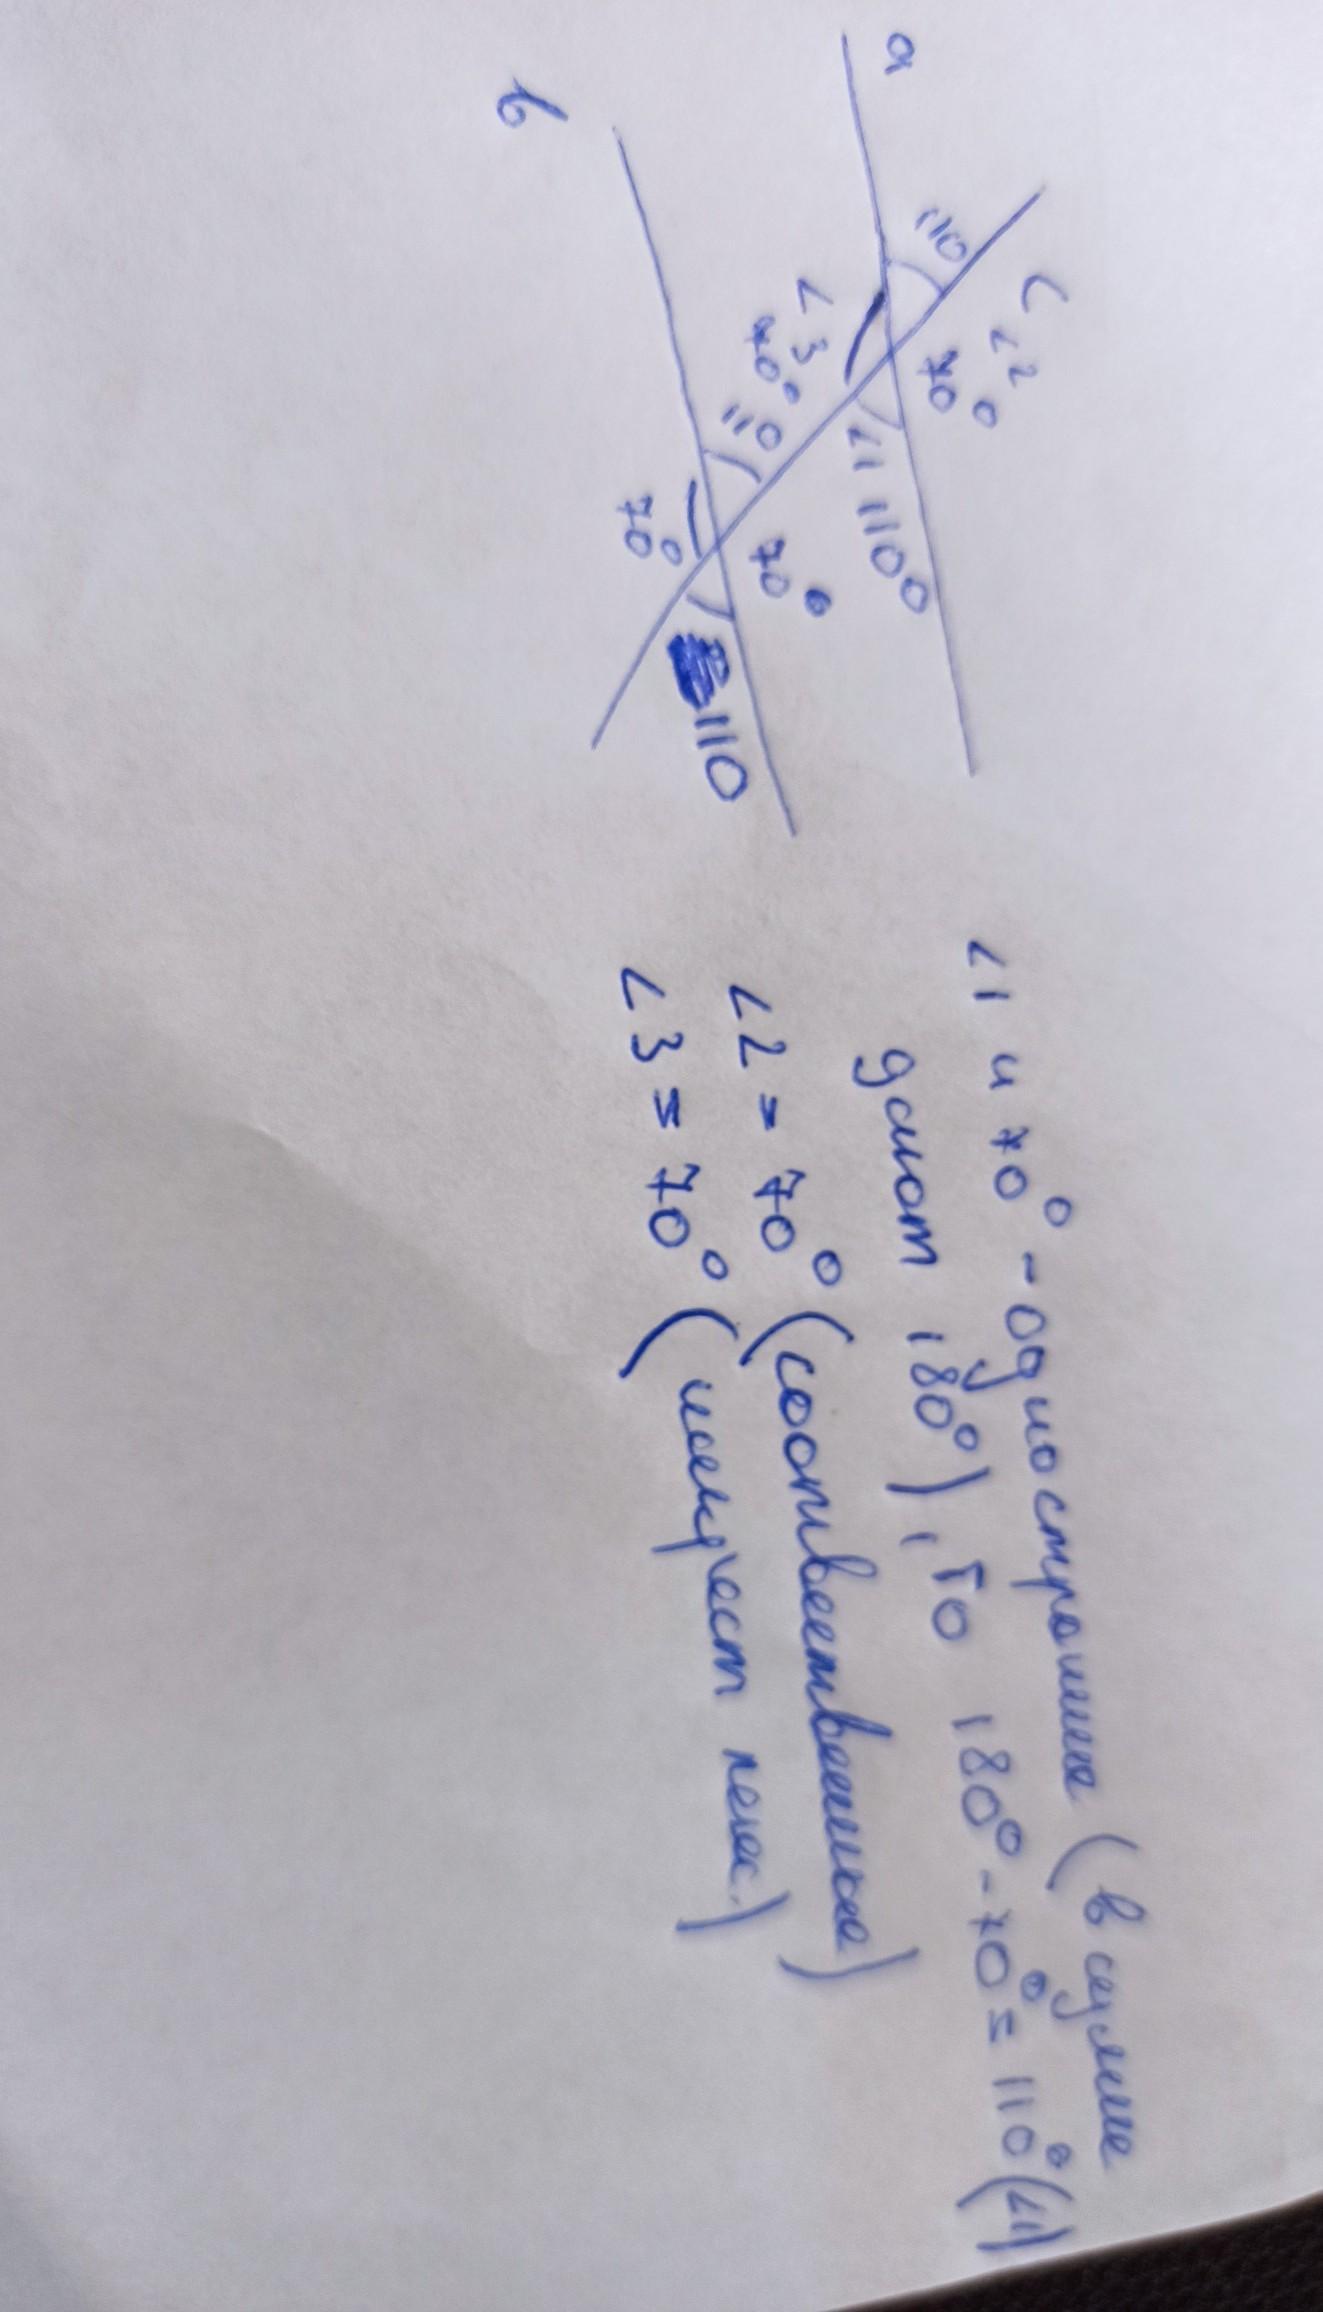 a
110
c
∠2
70°
∠3
70°
∠1 110°
b
110
70°
70°
110
∠1 и 70° - односторонние (в сумме
дают 180°), то 180° - 70° = 110° (∠1)
∠2 = 70° (соответственные)
∠3 = 70° (накрест леж.)